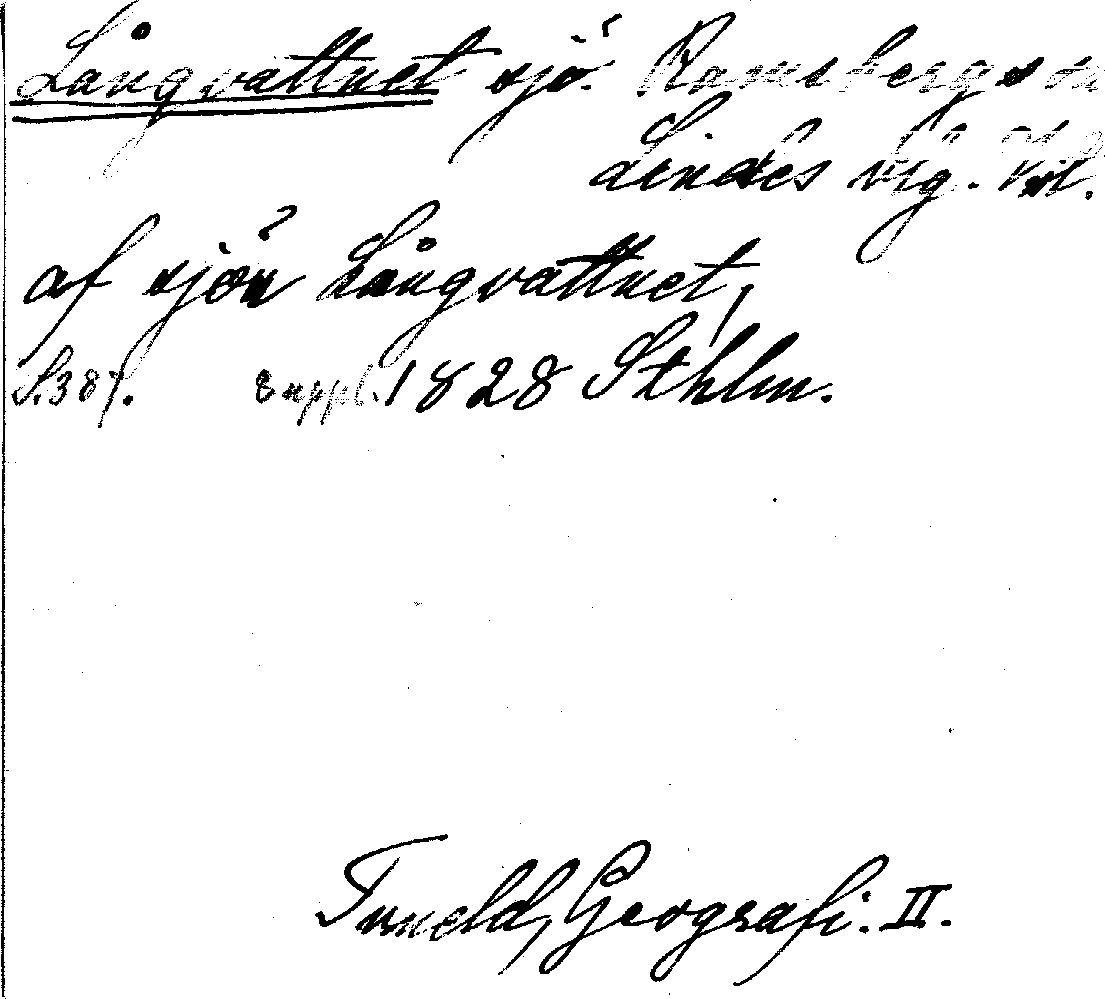 Långvattnet sjö. Ramsbergs sn
Lindes bsg. Vstl.
af sjön Långvattnet,
S.387. Suppl. 1828 Sthlm.
Tuneld, Geografi. II.